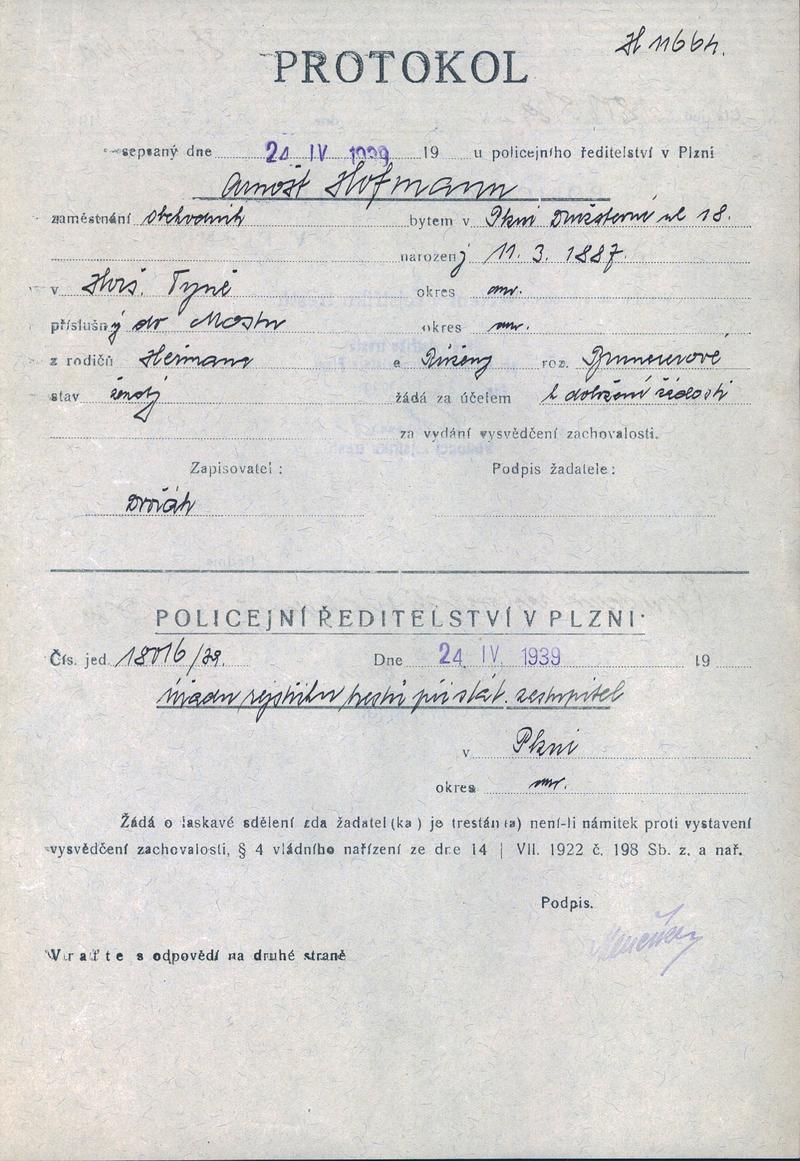 H 11664.
PROTOKOL
sepsaný dne 24 IV 1939 19 u policejního ředitelství v Plzni
Arnošt Hofmann
zaměstnání obchodník bytem v Plzni Družstevní ul 18.
narozený 11. 3. 1887.
v Horš. Týně okres
příslušný do Mostu okres
z rodičů Heřmana a Růženy roz.
stav ženatý žádá za účelem k doložení žádosti
za vydání vysvědčení zachovalosti.
Zapisovatel: Podpis žadatele:
Dvořák
POLICEJNÍ ŘEDITELSTVÍ V PLZNI
Čís. jed. 18016/39. Dne 24 IV. 1939 19
úřadu rejstříku trestů při stát. zastupitel
v Plzni
okres
Žádá o laskavé sdělení zda žadatel (ka) je trestán (a) není-li námitek proti vystavení
vysvědčení zachovalosti, § 4 vládního nařízení ze dne 14 | VII. 1922 č. 198 Sb. z. a nař.
Podpis.
Vraťte s odpovědí na druhé straně